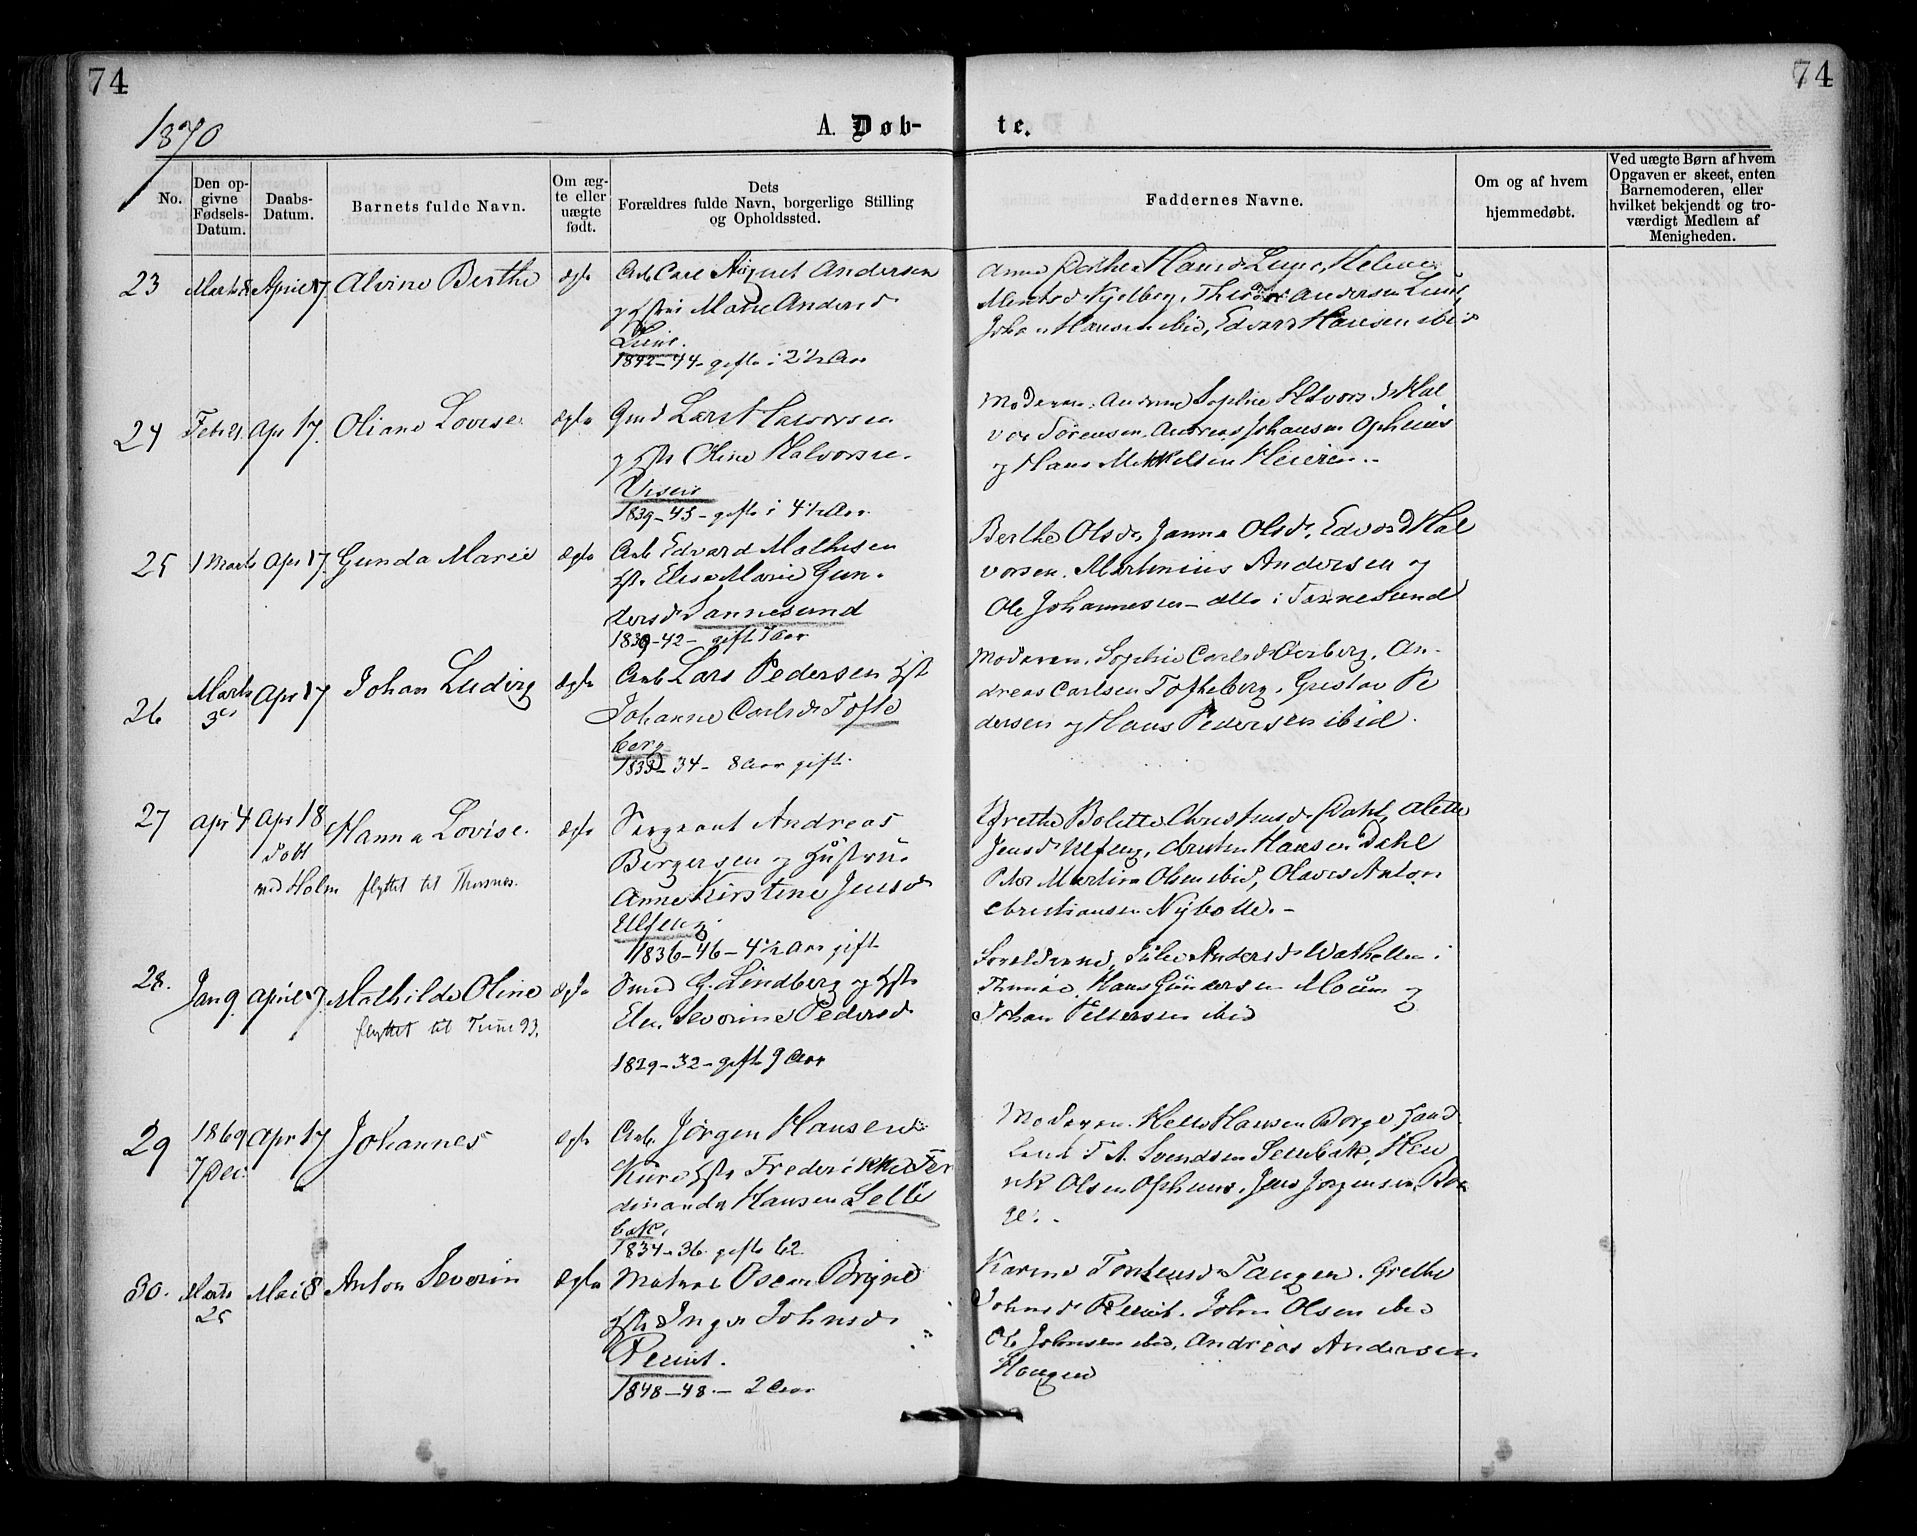 74
74
1870
A. Døb- te.
No.
Den opgivne Fødsels-Datum.
Daabs-Datum.
Barnets fulde Navn.
Om ægte eller uægte født.
Dets Forældres fulde Navn, borgerlige Stilling og Opholdssted.
Faddernes Navne.
Om og af hvem hjemmedøbt.
Ved uægte Børn af hvem Opgaven er skeet, enten Barnemoderen, eller hvilket bekjendt og troværdigt Medlem af Menigheden.
23 Marts April 17 Alvine Berthe ægte
Arb Carl August Andersen
Marie Andersd
Lund.
1842-44- gifte i 2½ Aar
Anne Hansd Lund, Helene
Andersen Lund,
Johan Hansen ibid, Edvard Hansen ibid
24 Feb 21 Apr 17. Oliane Lovise ægte
Gmd Lars Halvorsen
og Hstr Oline Halvorsen
1839-45- gifte i 4½ Aar
Moderen, Andrine Sophie Halvorsd Hal
vor Sørensen, Andreas Johansen Ophuus
og Hans Mikkelsen Heieren.-
25 1 Marts Apr 17. Gunda Marie ægte
Arb Edvard Mathisen
Hstr Elise Marie Gun-
dersd Sannesund
1839-42- gift 7 Aar
Berthe Olsd, Janna Olsd, Edvard Hal
vorsen, Martinius Andersen og
Ole Johannesen - alle i Sannesund
26 Marts 3 Apr 17 Johan Ludvig ægte
Arb Lars Pedersen Hst
Johanne Carlsd Tofte
berg
1833-34- 8 Aar gift.
Moderen, Sophie Carlsd Overberg, An-
dreas Carlsen Tofteberg, Gustav Pe
dersen og Hans Pedersen ibid.
27 Apr 4 Apr 18 Hanna Lovise. ægte
døbt
ved Holm flyttet til
Sergeant Andreas
Bergersen og Hustru
Anne Kirstine Jensd
Ulfeng.
1836-46-4½ Aar gift
Grethe Bolette Christiansd Dahl, Alette
Jensd Ulfeng, Christen Hansen Dahl
Peter Martin Olsen ibid, Olaves Anton
Christiansen Nybolle.-
28. Jan 9. April 17 Mathilde Oline ægte
flyttet til Tune 93.
Smed G. Lindberg og Hstr
Severine Pedersd
1829-32- gifte 9 Aar
Forældrene, Julie Andersd i
Thunø, Hans Gundersen Moum og
Johan Pettersen ibid
29 1869 7 Dec. Apr 17 Johannes ægte
Arb. Jørgen Hansen
Hstr Frederikke Fer
dinanda Hansen Selle
bak,
1834-36 gifte 62
Moderen. Helle Hansen Borge, Sand
T. A. Svendsen Sellebak, Hen
rik Olsen Ophuus, Jens Jørgensen Bor
ge.-
30. Marts 25 Mai 8 Anton Severin ægte
Matros Oscar
Hstr Inger Johnsd
1848-48- 2 Aar
Karine Tangen. Grethe
Johnsd John Olsen ibid
Ole Johnsen ibid, Andreas Andersen
Haugen